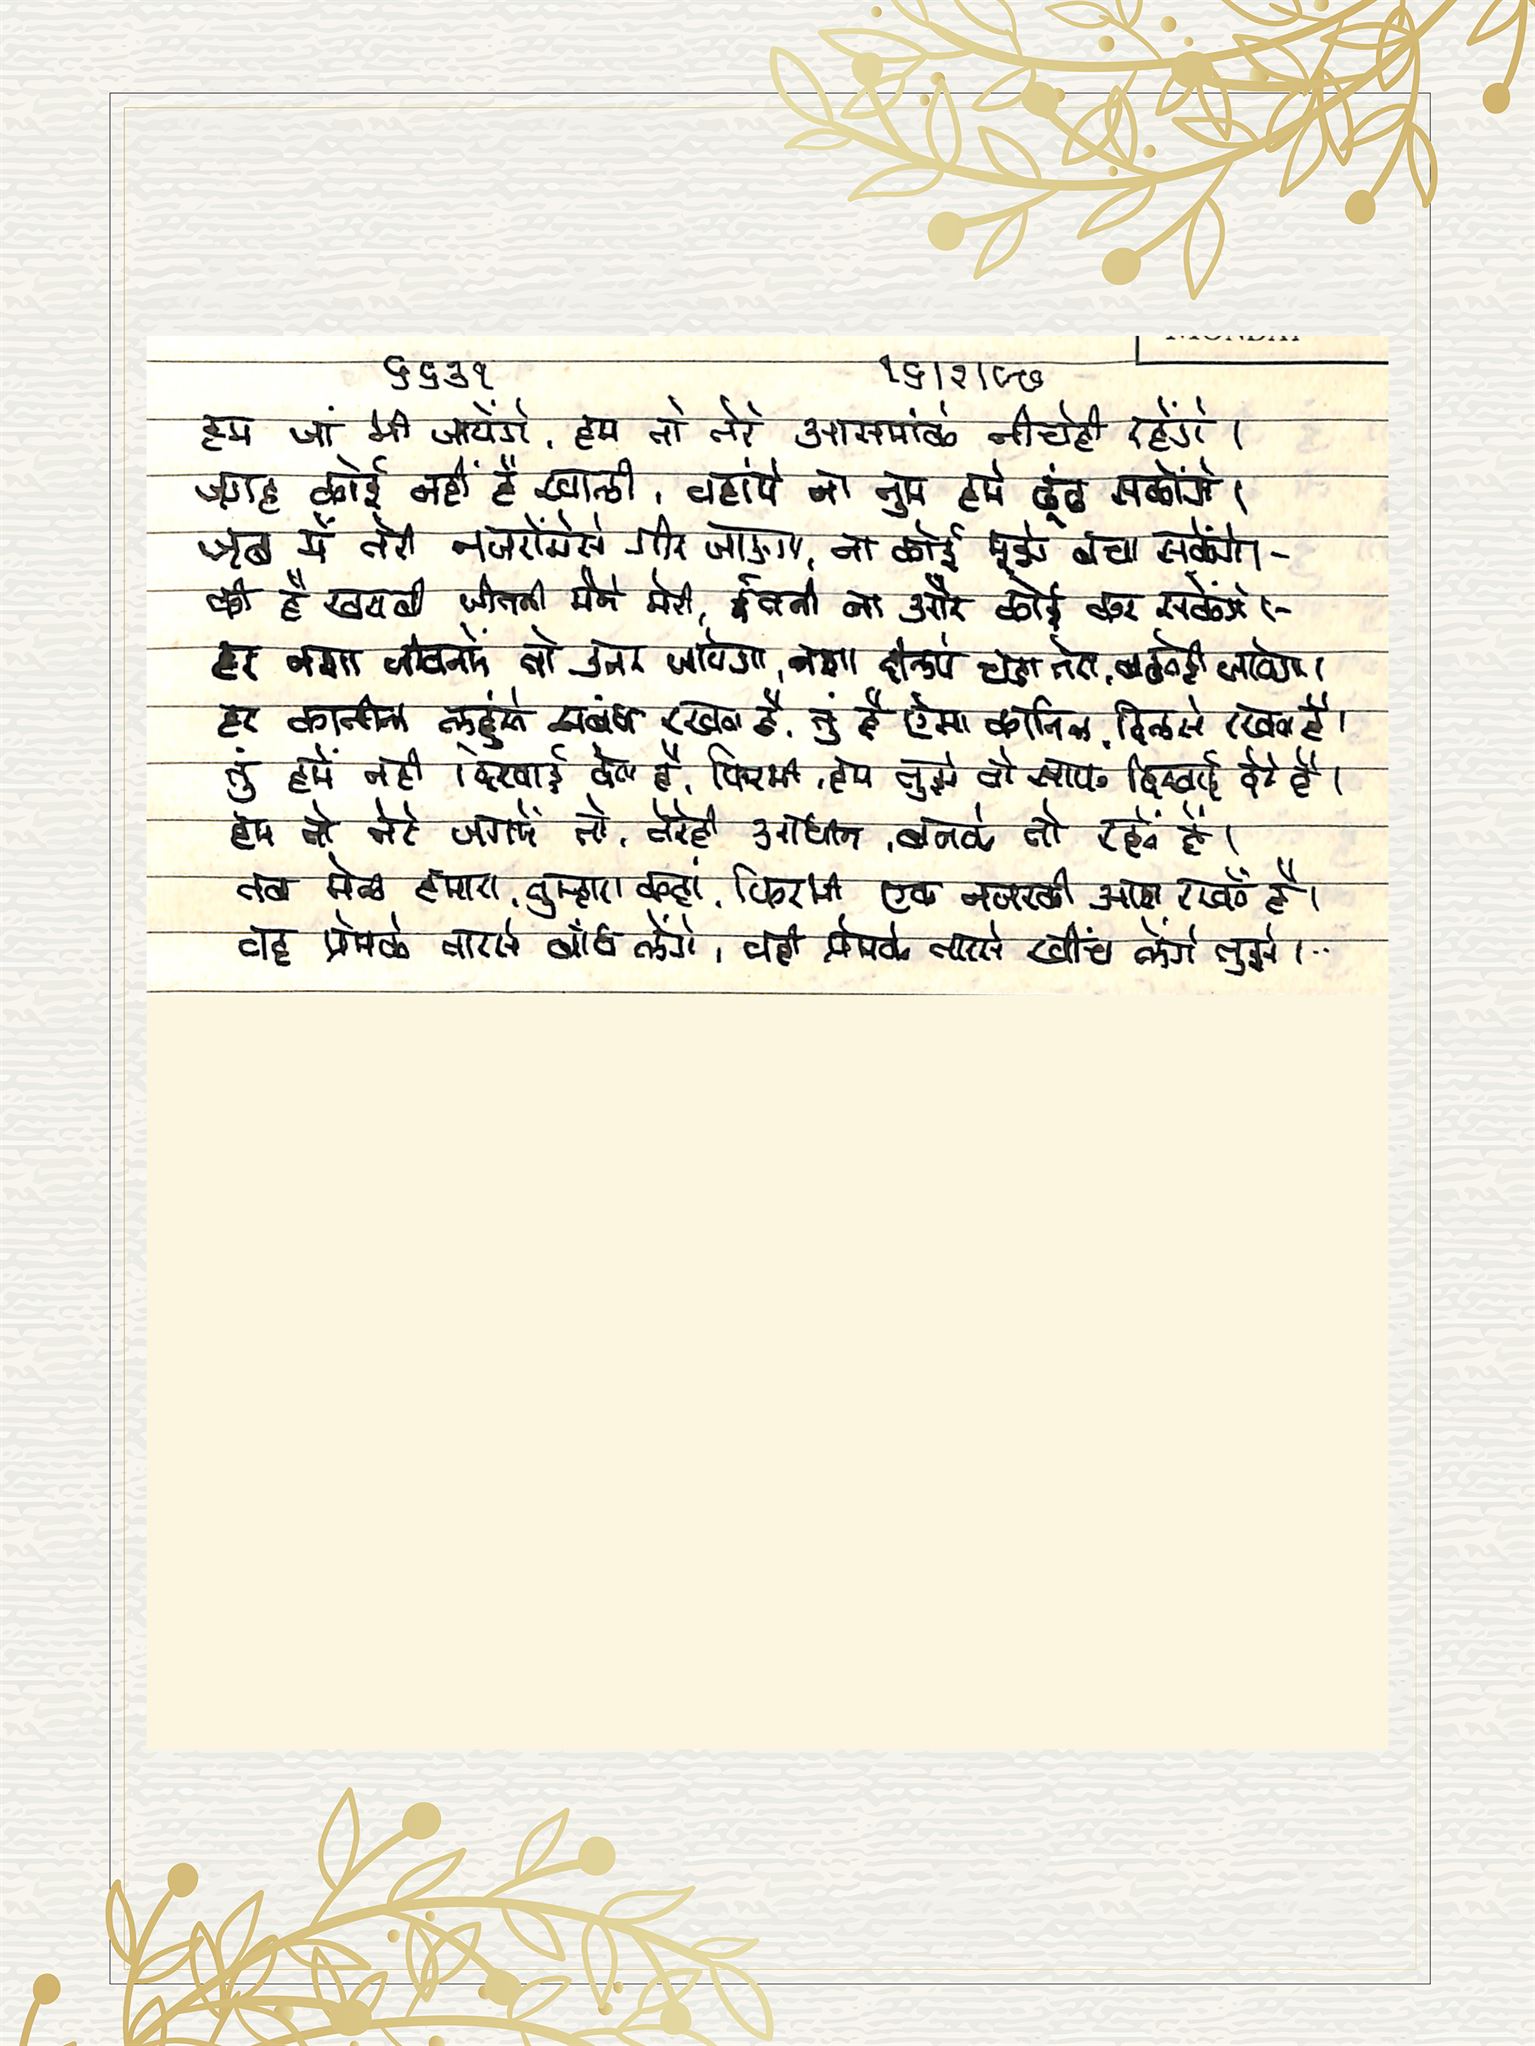 MONDAY
६६३१ १६।२।८७
हम जां भी जायेंगे, हम तो तेरे आसमांके नीचेही रहेंगे ।
जगह कोई नहीं है खाली, वहांपे ना तुम हमे ढूंढ सकोंगे ।
जब में तेरी नजरोंमेसे गीर जाऊगा, ना कोई मूझे बचा सकेंगे ।-
की है खराबी जीतनी मैने मेरी, ईतनी ना और कोई कर सकेंगे ।-
हर नशा जीवनमें तो उतर जायेगा, नशा चढा तेरा, बढतेही जायेगा ।
हर कातील लहुंसे सबंध रखता है, तुं है ऐसा कातिल, दिलसे रखता है ।
तुं हमें नही दिखाई देता है, फिरभी, हम तुझे तो साफ दिखाई देते है ।
हम तो तेरे जगमें तो, तेरेही आधीन, बनके तो रहते हैं ।
तब मेळ हमारा, तुम्हारा कहां, फिरभी एक नजरकी आश रखतें है ।
वह प्रेमके तारसे बाँध लेंगे, वही प्रेमके तारसे खींच लेंगे तुझे ।..